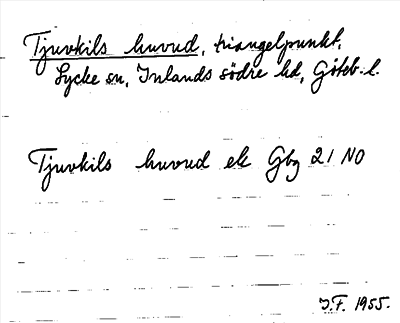 Tjuvkils huvud, triangelpunkt,
Lycke sn, Inlands södre hd, Göteb. l.
Tjuvkils huvud ek Gbg 21 NO
J.F. 1955.